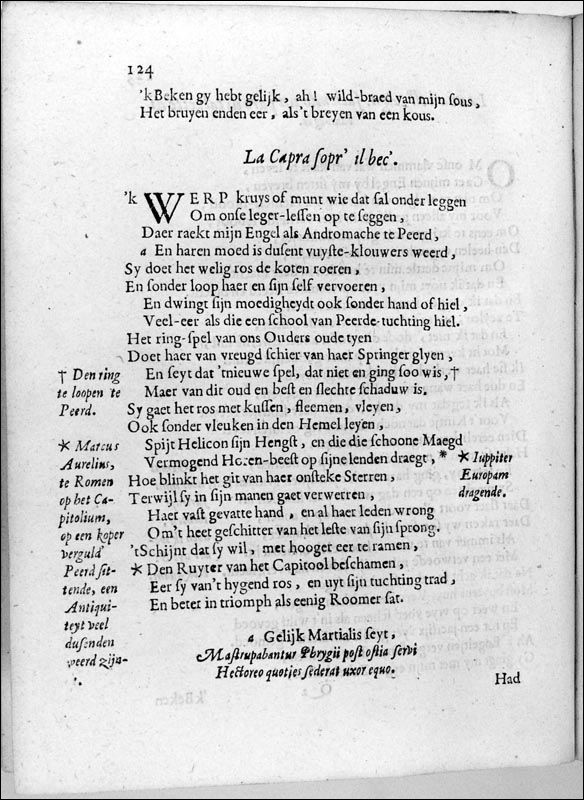 124
'k Beken gy hebt gelijk, ah! wild-braed van mijn sous,
Het bruyen enden eer, als 't breyen van een kous.
La Capra sopr' il bec'.
'k WERP kruys of munt wie dat sal onder leggen
Om onse leger-lessen op te seggen,
Daer raekt mijn Engel als Andromache te Peerd,
a En haren moed is dusent vuyste-klouwers weerd,
Sy doet het welig ros de koten roeren,
En sonder loop haer en sijn self vervoeren,
En dwingt sijn moedigheydt ook sonder hand of hiel,
Veel-eer als die een school van Peerde-tuchting hiel.
Het ring-spel van ons Ouders oude tyen
Doet haer van vreugd schier van haer Springer glyen,
En seyt dat 'tnieuwe spel, dat niet en ging soo wis, †
Maer van dit oud en best en slechte schaduw is.
Sy gaet het ros met kussen, fleemen, vleyen,
Ook sonder vleuken in den Hemel leyen,
Spijt Helicon sijn Hengst, en die die schoone Maegd
Vermogend Horen-beest op sijne lenden draegt, *
Hoe blinkt het git van haer onsteke Sterren,
Terwijl sy in sijn manen gaet verwerren,
Haer vast gevatte hand, en al haer leden wrong
Om't heet geschitter van het leste van sijn sprong.
'tSchijnt dat sy wil, met hooger eer te ramen,
* Den Ruyter van het Capitool beschamen,
Eer sy van't hygend ros, en uyt sijn tuchting trad,
En beter in triomph als eenig Roomer sat.
† Den ring
te loopen te
Peerd.
* Marcus
Aurelius,
te Romen
op het Ca-
pitolium,
op een koper
verguld
Peerd sit-
tende, een
Antiqui-
teyt veel
dusenden
weerd zijn-
* Iuppiter
Europam
dragende.
a Gelijk Martialis seyt,
Mastrupabantur Phrygii post ostia servi
Hectoreo quoties sederat uxor equo.
Had